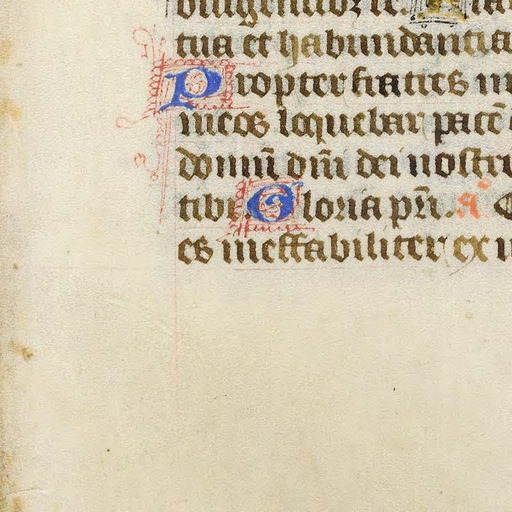 diligentibz te.
tua et habundantia
Propter fratres m
meos loquebar pacē
domū dn̄i dei nostri
tibi. Gloria pr̄i. a̅
es ineffabiliter ex